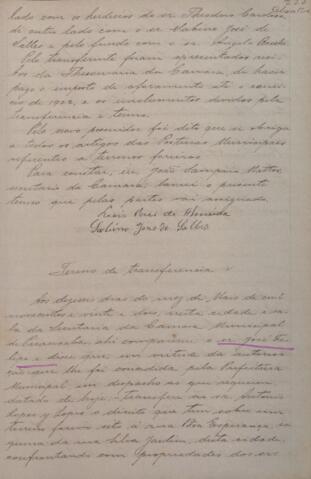 lado com os herdeiros do sr. Theodoro Cardoso
de outro lado com o sr. Sabino José de
Salles e pelo fundo com o sr. Angelo
Pelo transferente foram apresentados reci-
bos da Thesouraria da Camara, de haver
pago o imposto de aforamento até o exerci-
cio de 1922, e os emolumentos devidos pela
transferencia e termo.
Pelo novo possuidor foi dito que se obriga
a todos os artigos das Posturas Municipaes
referentes a terrenos foreiros.
Para constar, eu João Sampaio Mattos,
secretario da Camara, lavrei o presente
termo que pelas partes vai assignado
José de Almeida
Sabino José de Salles
Termo de transferencia
Aos dezeseis dias do mez de Maio de mil
novecentos e vinte e dois, nesta cidade e sa-
la da Secretaria da Camara Municipal
de ahi compareceu o sr. José Fe-
lipe e disse que em virtude da auctorisa-
ção que lhe foi concedida pela Prefeitura
Municipal em despacho ao que requereu
datado de hoje, transfere ao sr. Antonio
Lopes y Lopes o direito que tem sobre um
terreno foreiro sito á rua Bôa Esperança, es-
quina da rua Silva Jardim, desta cidade,
confrontando com propriedades dos srs.